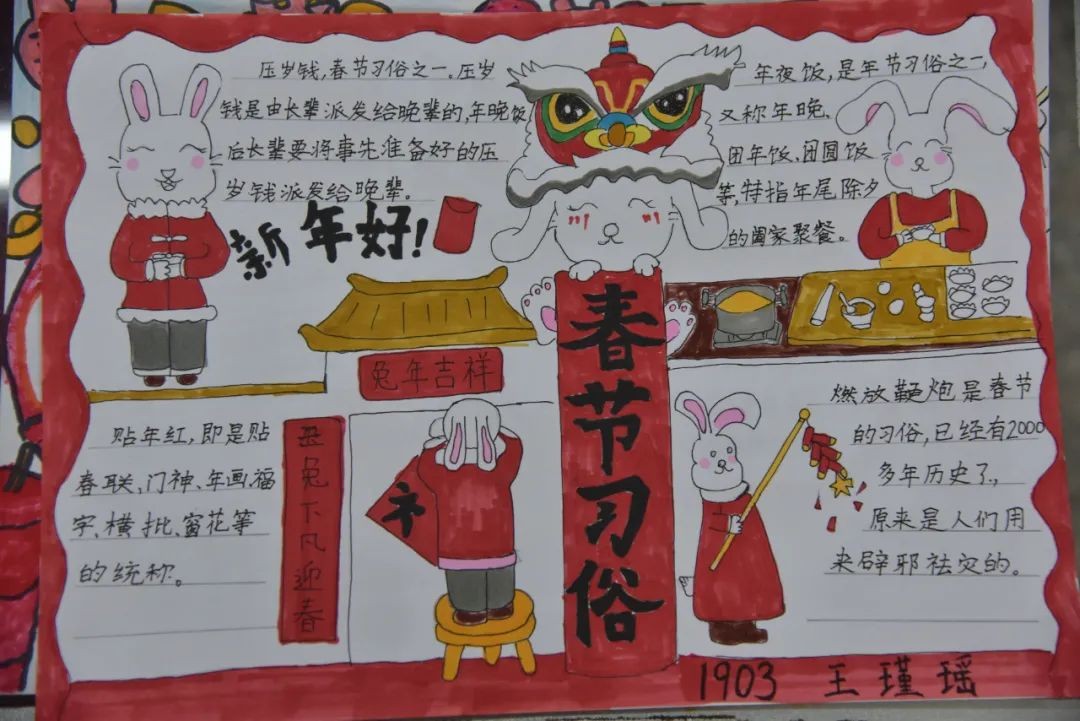 压岁钱,春节习俗之一。压岁
钱是由长辈派发给晚辈的,年晚饭
后长辈要将事先准备好的压
岁钱派发给晚辈。
新年好!
年夜饭,是年节习俗之一,
又称年晚、
团年饭、团圆饭
等,特指年尾除夕
的阖家聚餐。
春节习俗
兔年吉祥
贴年红,即是贴
春联、门神、年画福
字、横批、窗花等
的统称。
丑兔下凡迎春
燃放鞭炮是春节
的习俗,已经有2000
多年历史了,
原来是人们用
来辟邪祛灾的。
1903 王瑾瑶